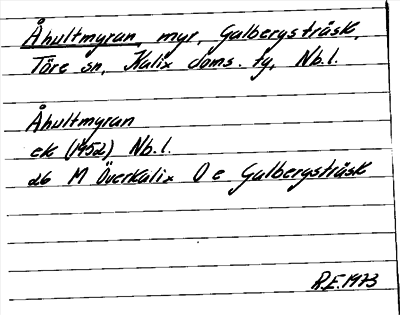 Åhultmyran, myr, Galbergsträsk,
Töre sn, Kalix doms. tg, Nb.l.
Åhultmyran
ek (1952) Nb.l.
26 M Överkalix O e Galbergsträsk
R.E. 1973